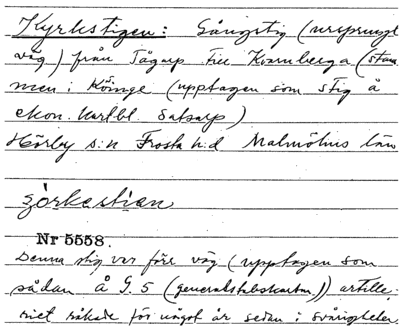 Kyrkstigen: Gångstig (ursprungl
väg) från Tågarp till Kvarnberga (stom
men i Könge (upptagen som stig å
ekon. kartbl. Satsarp)
Hörby s:n Frosta h:d Malmöhus län
Nr 5558.
Denna stig var förr väg (upptagen som
sådan å G. 5 (generalstabskartan)) artille-
riet råkade för något år sedan i svårigheter